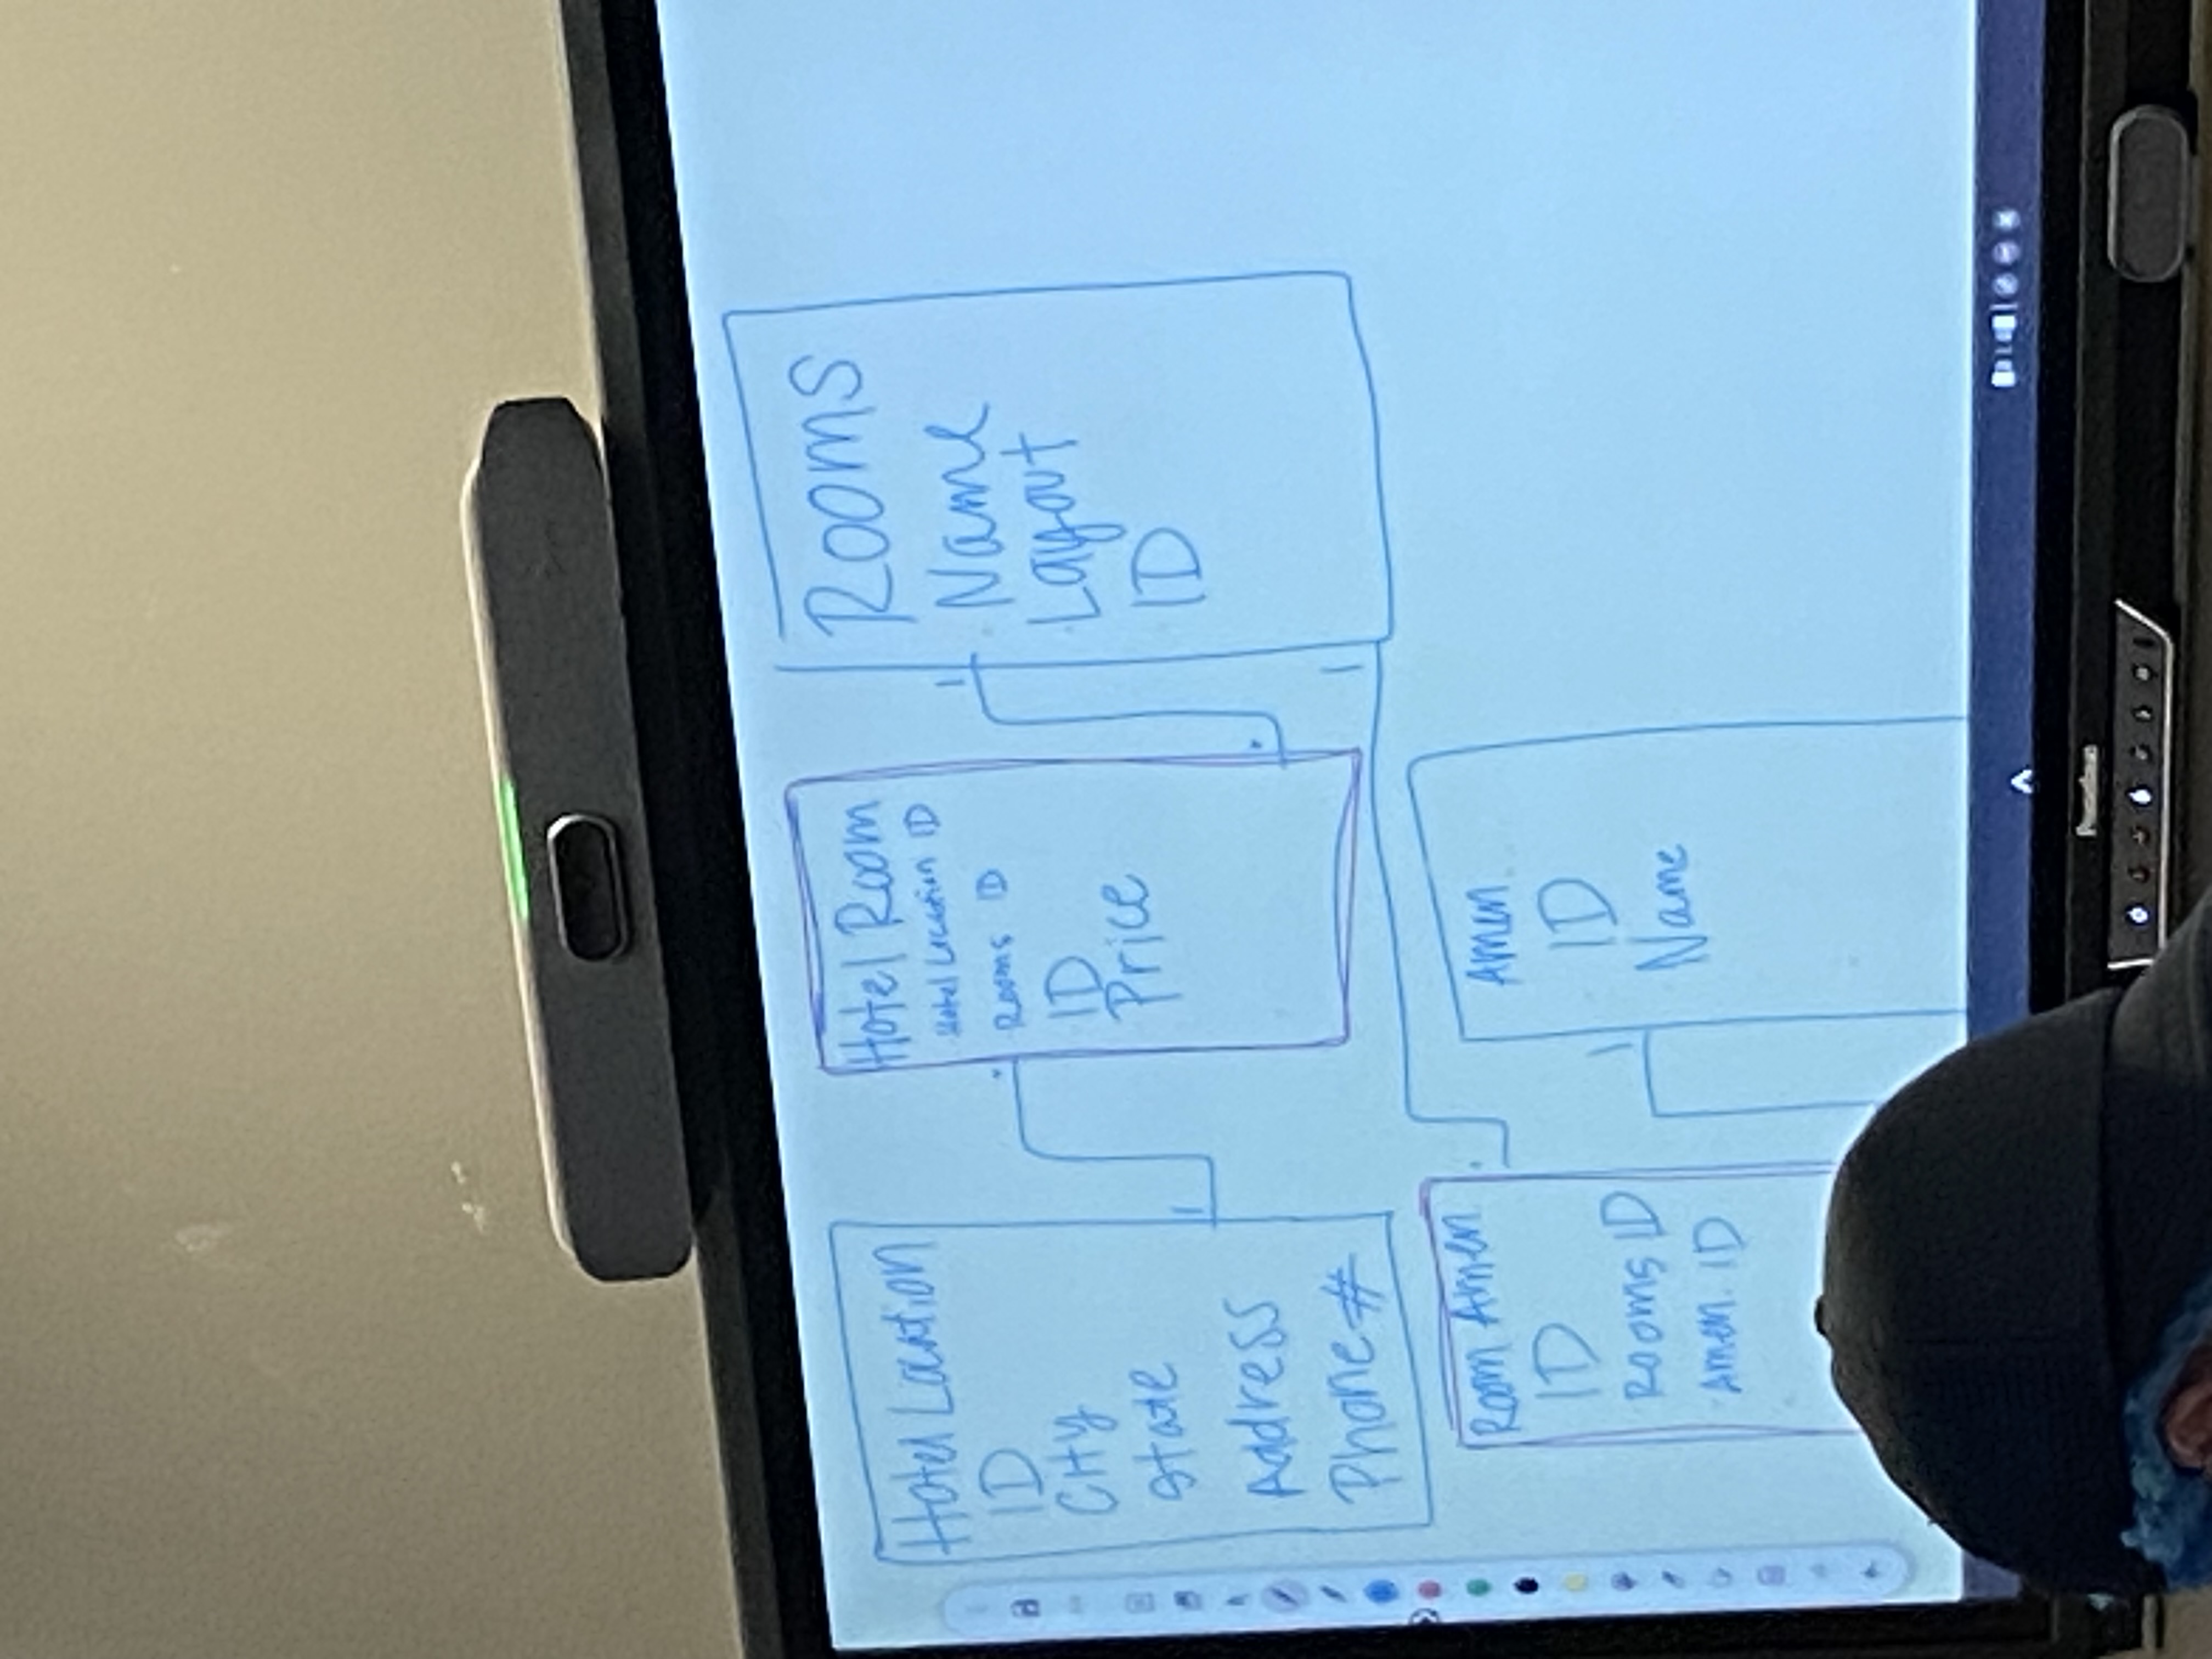 Hotel Location
ID
City
State
Address
Phone #
Hotel Room
Hotel Location ID
Rooms ID
ID
Price
1
Rooms
Name
Layout
ID
1
1
Room Amen.
ID
Rooms ID
Amen. ID
1
Amen.
ID
Name
Promethean